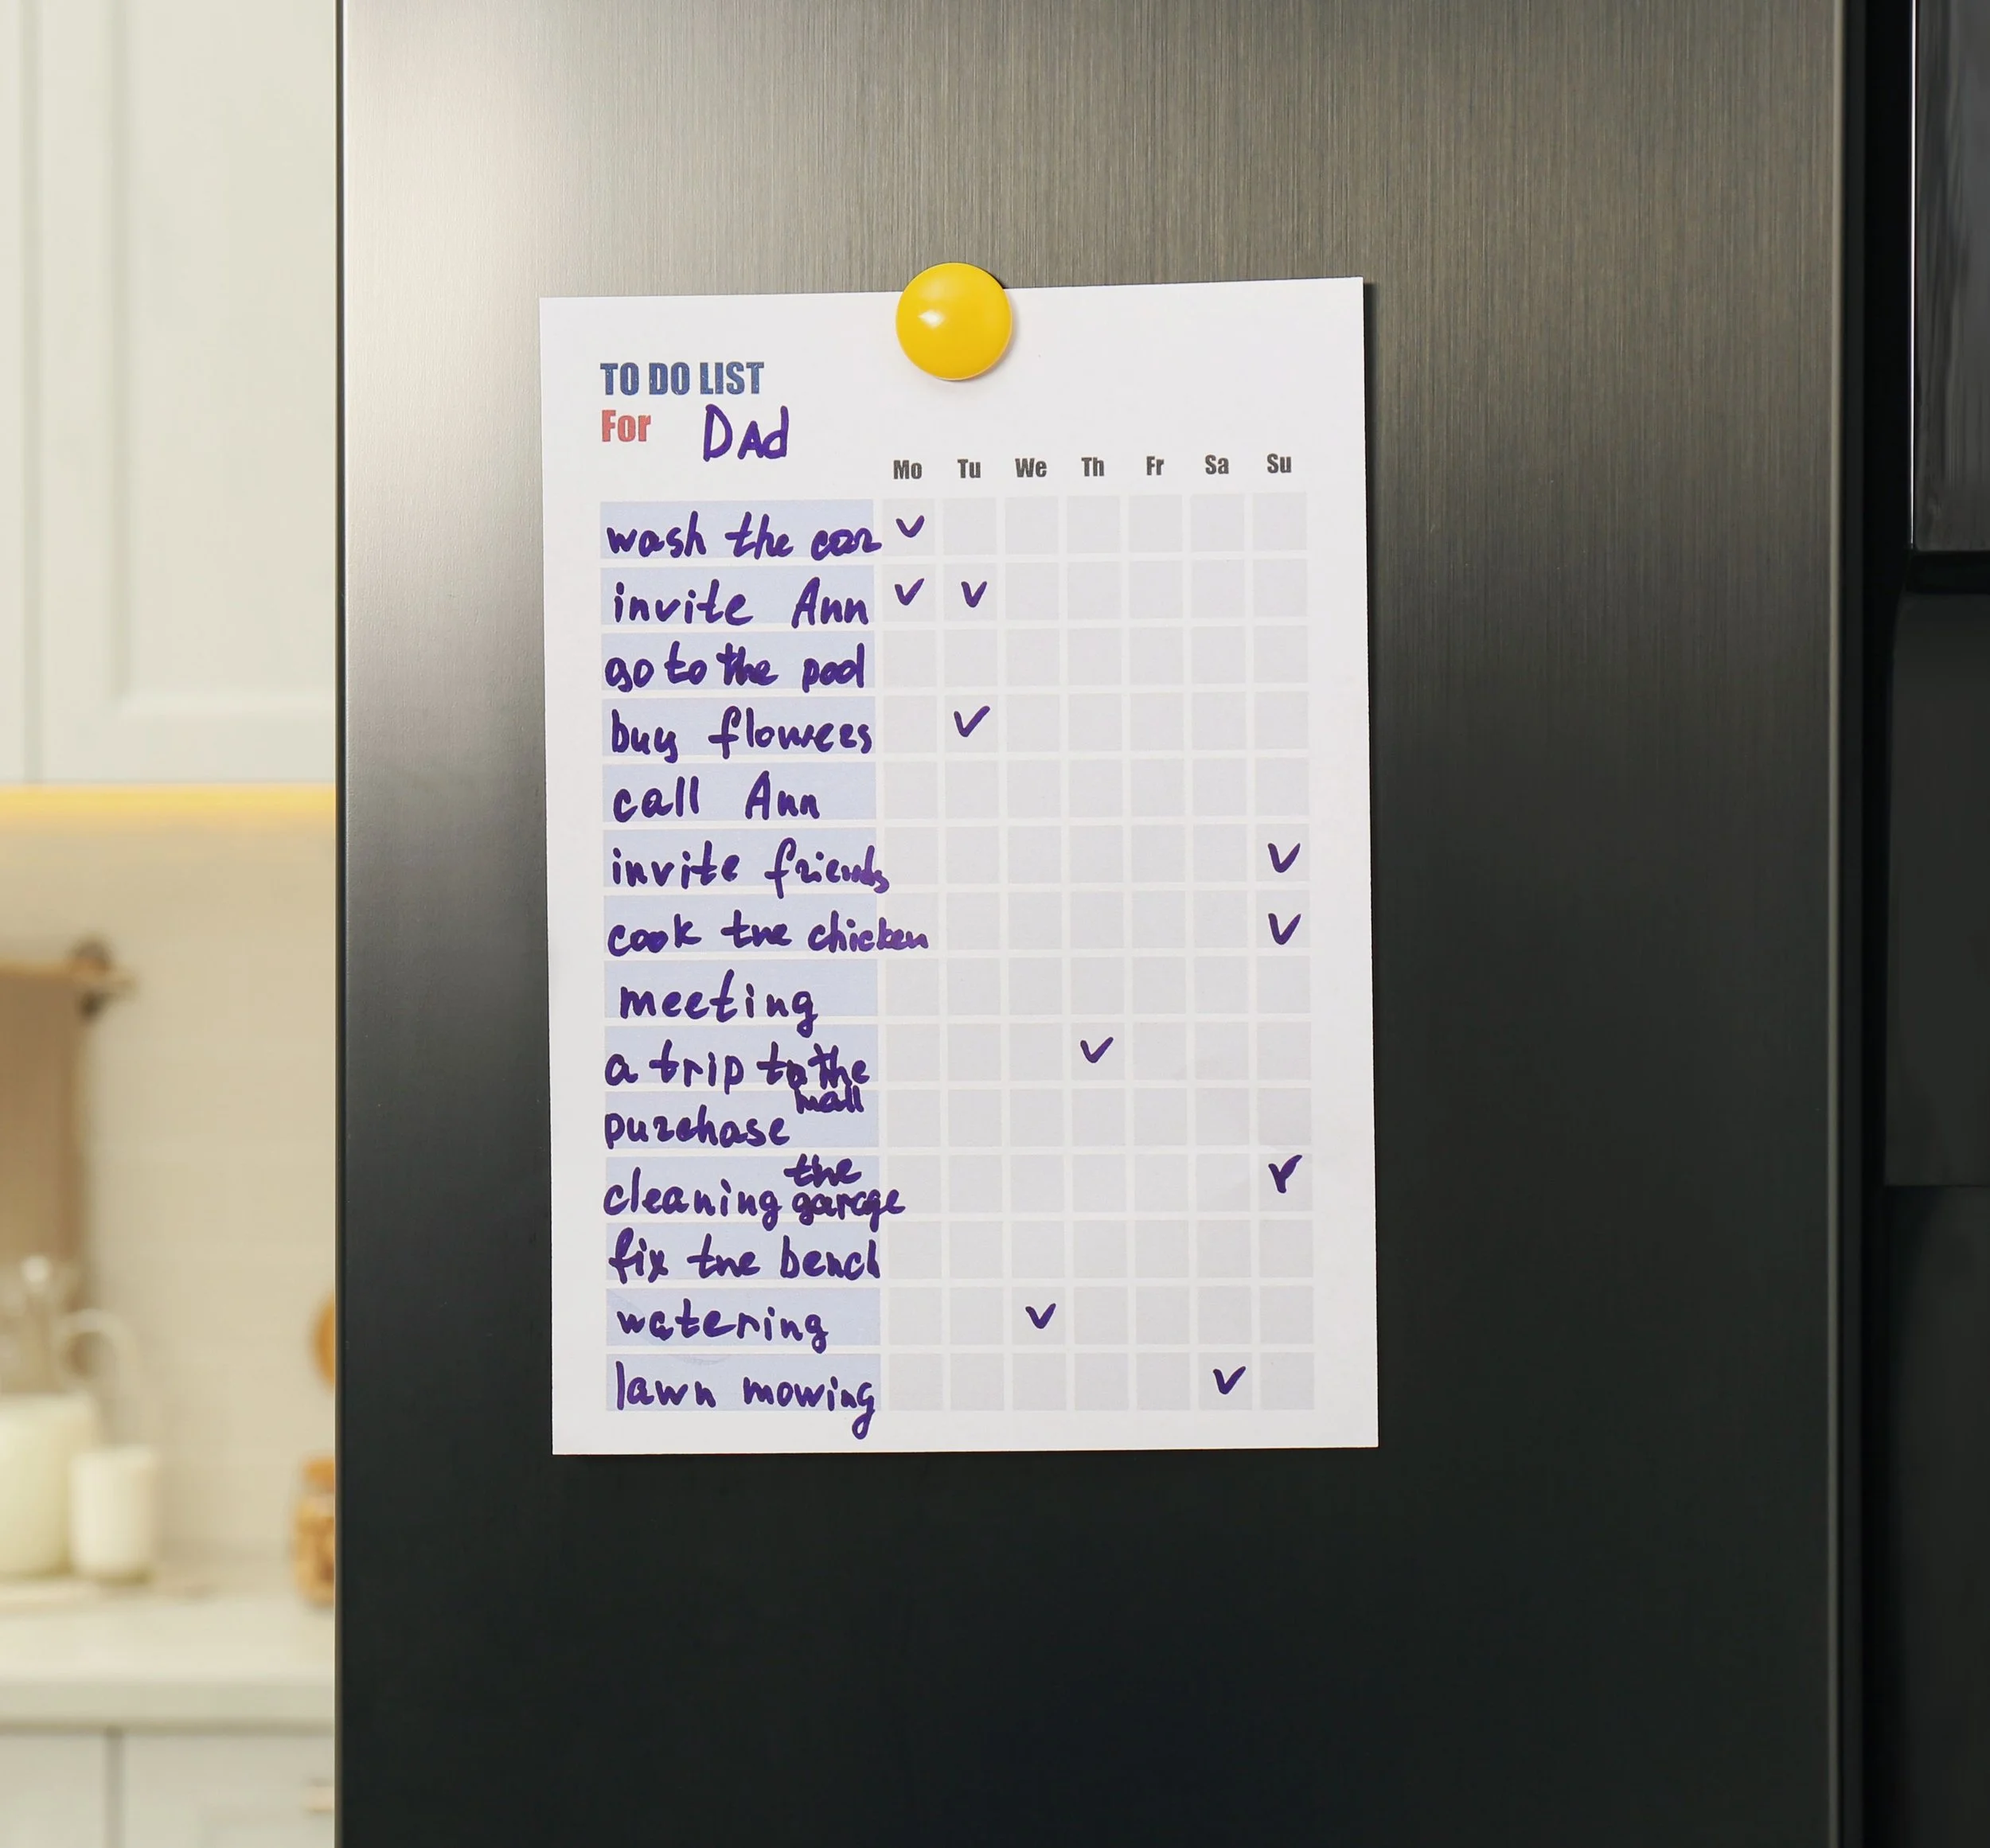 TO DO LIST
For Dad
Mo Tu We Th Fr Sa Su
wash the car
invite Ann
go to the pool
buy flowers
call Ann
invite friends
cook the chicken
meeting
a trip to the
mall
purchase
the
cleaning garage
fix the bench
watering
lawn mowing